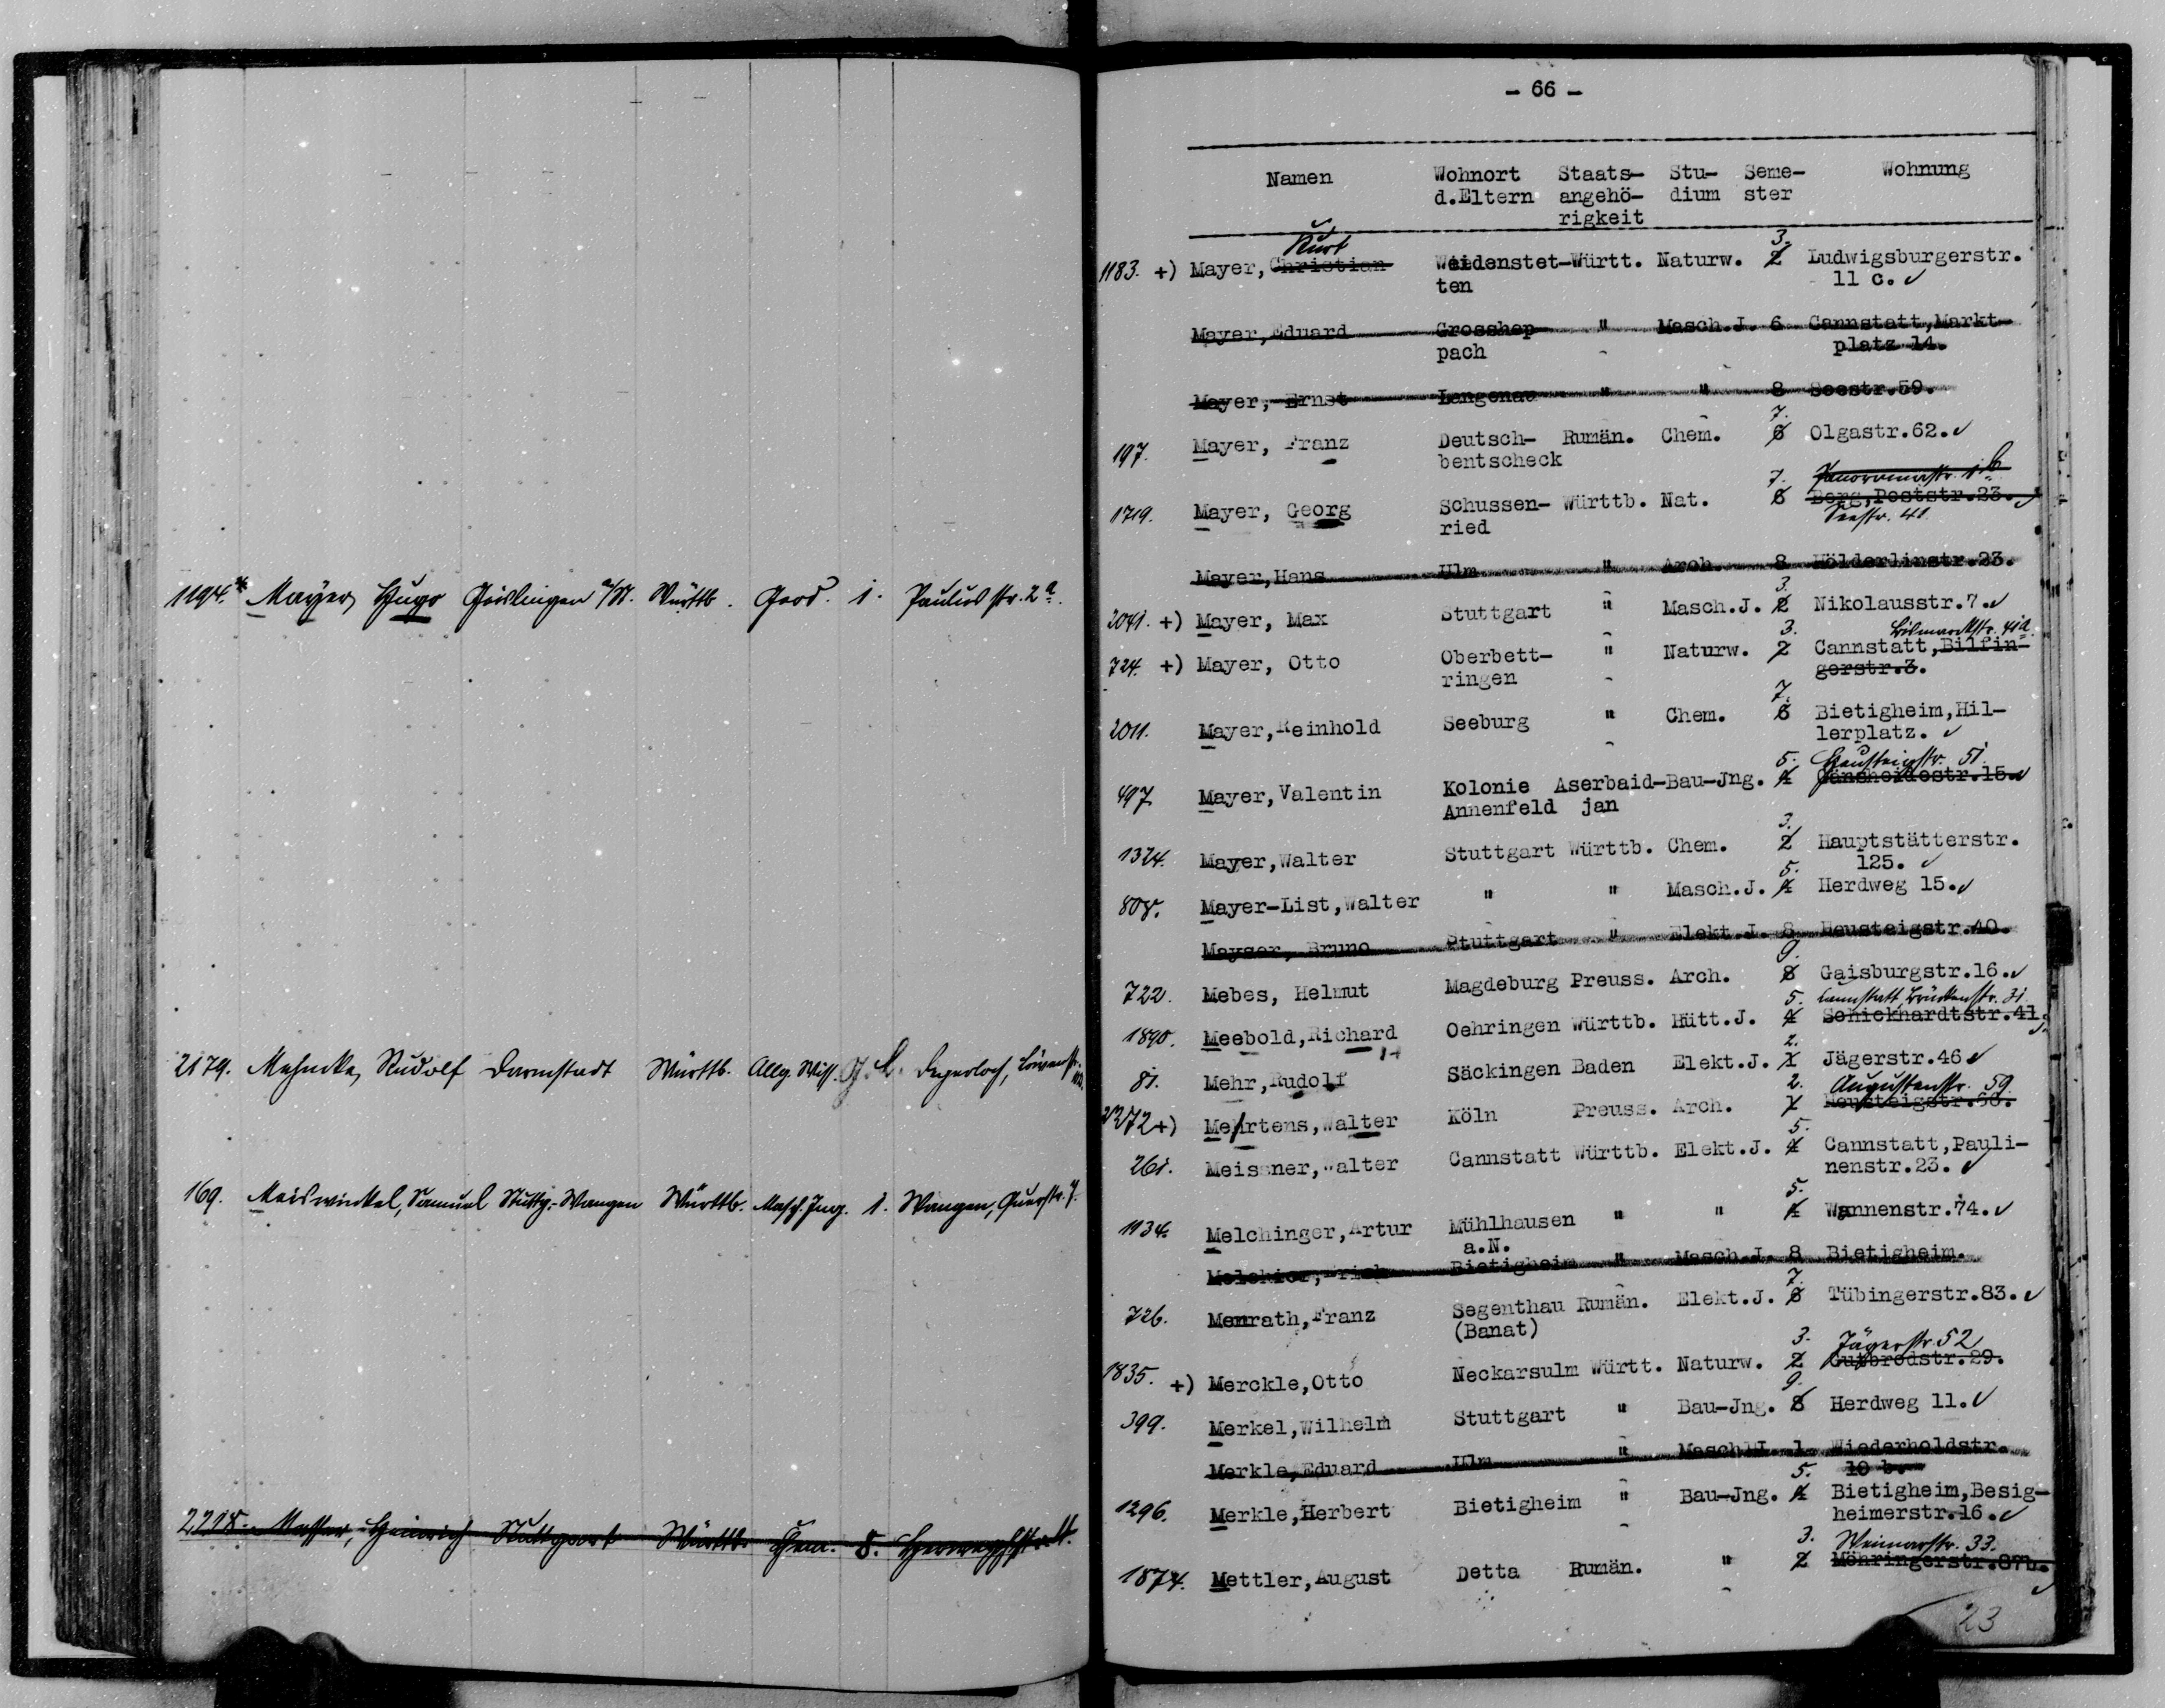 1194.* Mayer Hugo Geislingen a/St. Württb. Geod. 1. Paulusstr. 2a.
2179. Mehmke, Rudolf Darmstadt Württb. Allg. Wiss. Degerloch, Löwenstr.
169. Meiswinkel, Samuel Stuttg.-Wangen Württb. Masch. Ing. 1. Wangen, Querstr. 7.
2218. Messer, Heinrich Stuttgart Württb. Chem. 5. Herweghstr.
- 66 -
Namen Wohnort Staats- Stu- Seme- Wohnung
d.Eltern angehö- dium ster
rigkeit
Kurt 3.
1183. +) Mayer, Christian Weidenstet-Württ. Naturw. 2 Ludwigsburgerstr.
ten 11 c. ✓
Mayer, Eduard Grosshep- " Masch.J. 6 Cannstatt, Markt-
pach platz 14.
Mayer, Ernst Langenau " " 8 Seestr.59.
7.
197. Mayer, Franz Deutsch- Rumän. Chem. 6 Olgastr.62. ✓
bentscheck
7. Panoramastr. 1b
1719. Mayer, Georg Schussen- Württb. Nat. 6 Berg, Poststr.23.
ried Seestr. 41
Mayer, Hans Ulm " Arch. 8 Hölderlinstr.23.
3.
2041. +) Mayer, Max Stuttgart " Masch.J. 2 Nikolausstr.7. ✓
3. Bismarckstr. 41a.
724. +) Mayer, Otto Oberbett- " Naturw. 2 Cannstatt, Bilfin-
ringen gerstr.3.
7.
2011. Mayer, Reinhold Seeburg " Chem. 6 Bietigheim, Hil-
lerplatz. ✓
5. Heusteigstr. 51.
497 Mayer, Valentin Kolonie Aserbaid-Bau-Jng. 4 Gänsheidestr.15. ✓
Annenfeld jan
3.
1374. Mayer, Walter Stuttgart Württb. Chem. 2 Hauptstätterstr.
125. ✓
5.
808. Mayer-List, Walter " " Masch.J. 4 Herdweg 15. ✓
Mayser, Bruno Stuttgart " Elekt.J. 8 Heusteigstr.40.
9.
722. Mebes, Helmut Magdeburg Preuss. Arch. 8 Gaisburgstr.16. ✓
5. Cannstatt, Brückenstr. 31
1890. Meebold, Richard Oehringen Württb. Hütt.J. 4 Schickhardtstr.41.
2.
81. Mehr, Rudolf Säckingen Baden Elekt.J. 1 Jägerstr.46 ✓
2. Augustenstr. 59.
2272 +) Mehrtens, Walter Köln Preuss. Arch. 1 Heusteigstr.
5.
261. Meissner, Walter Cannstatt Württb. Elekt.J. 4 Cannstatt, Pauli-
nenstr.23. ✓
5.
1134. Melchinger, Artur Mühlhausen " " 4 Wannenstr.74. ✓
a.N.
Melchior, Erich Bietigheim " Masch.J. 8 Bietigheim.
7.
726. Menrath, Franz Segenthau Rumän. Elekt.J. 6 Tübingerstr.83. ✓
(Banat)
3. Jägerstr. 52
1835. +) Merckle, Otto Neckarsulm Württ. Naturw. 2 Gutbrodstr.29.
9.
399. Merkel, Wilhelm Stuttgart " Bau-Jng. 8 Herdweg 11. ✓
Merkle, Eduard Ulm " Masch.J. 1 Wiederholdstr.
10 b.
5.
1296. Merkle, Herbert Bietigheim " Bau-Jng. 4 Bietigheim, Besig-
heimerstr.16. ✓
3. Weimarstr. 33.
1874. Mettler, August Detta Rumän. " 2 Möhringerstr.87b. ✓
23